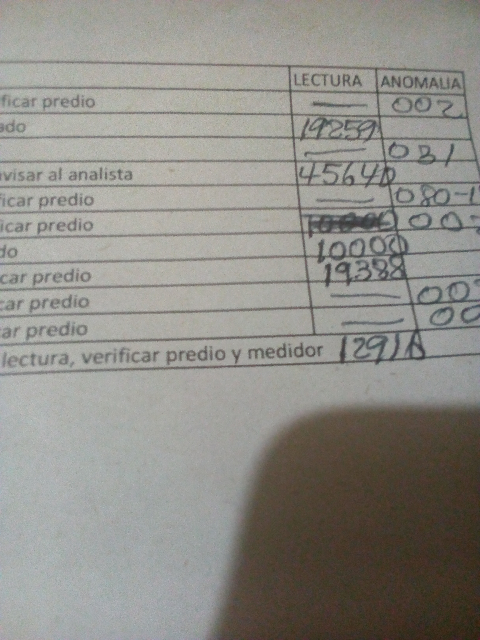 LECTURA ANOMALIA
ficar predio — 002
ado 19259
— 031
visar al analista
ficar predio — 080-1
icar predio
do
car predio 19388
car predio —
ar predio —
lectura, verificar predio y medidor